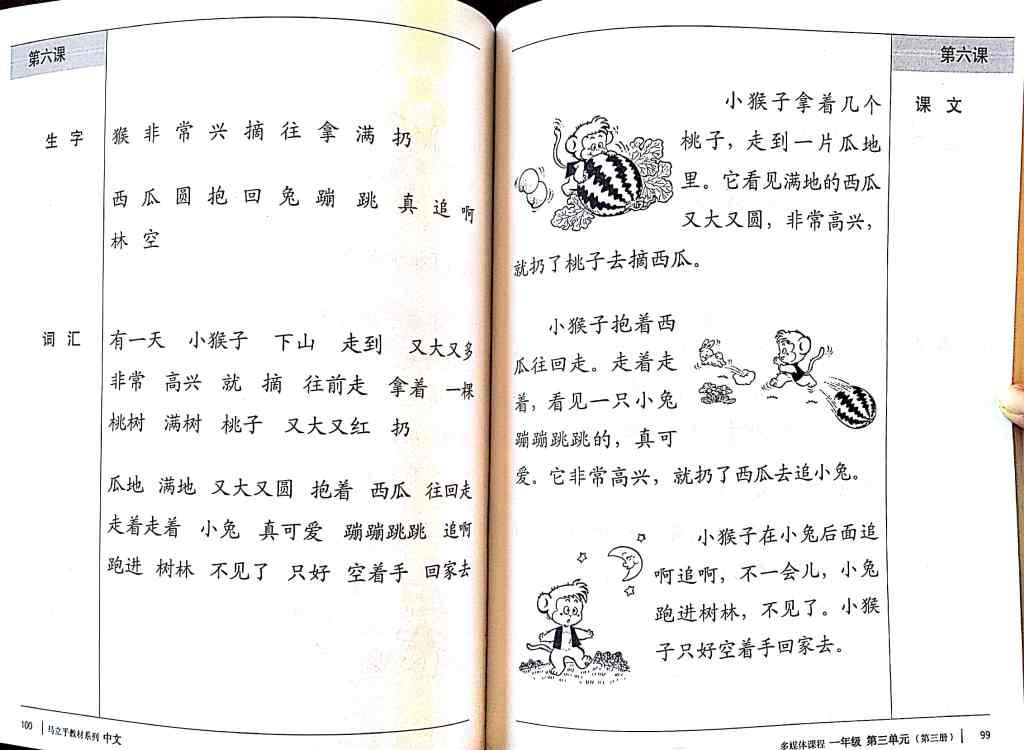 第六课
生字
猴 非 常 兴 摘 往 拿 满 扔
西 瓜 圆 抱 回 兔 蹦 跳 真 追 啊
林 空
词汇
有一天 小猴子 下山 走到 又大又多
非常 高兴 就 摘 往前走 拿着 一棵
桃树 满树 桃子 又大又红 扔
瓜地 满地 又大又圆 抱着 西瓜 往回走
走着走着 小兔 真可爱 蹦蹦跳跳 追啊
跑进 树林 不见了 只好 空着手 回家去
100 马立平教材系列 中文
第六课
课文
小猴子拿着几个
桃子，走到一片瓜地
里。它看见满地的西瓜
又大又圆，非常高兴，
就扔了桃子去摘西瓜。
小猴子抱着西
瓜往回走。走着走
着，看见一只小兔
蹦蹦跳跳的，真可
爱。它非常高兴，就扔了西瓜去追小兔。
小猴子在小兔后面追
啊追啊，不一会儿，小兔
跑进树林，不见了。小猴
子只好空着手回家去。
多媒体课程 一年级 第三单元（第三册） 99